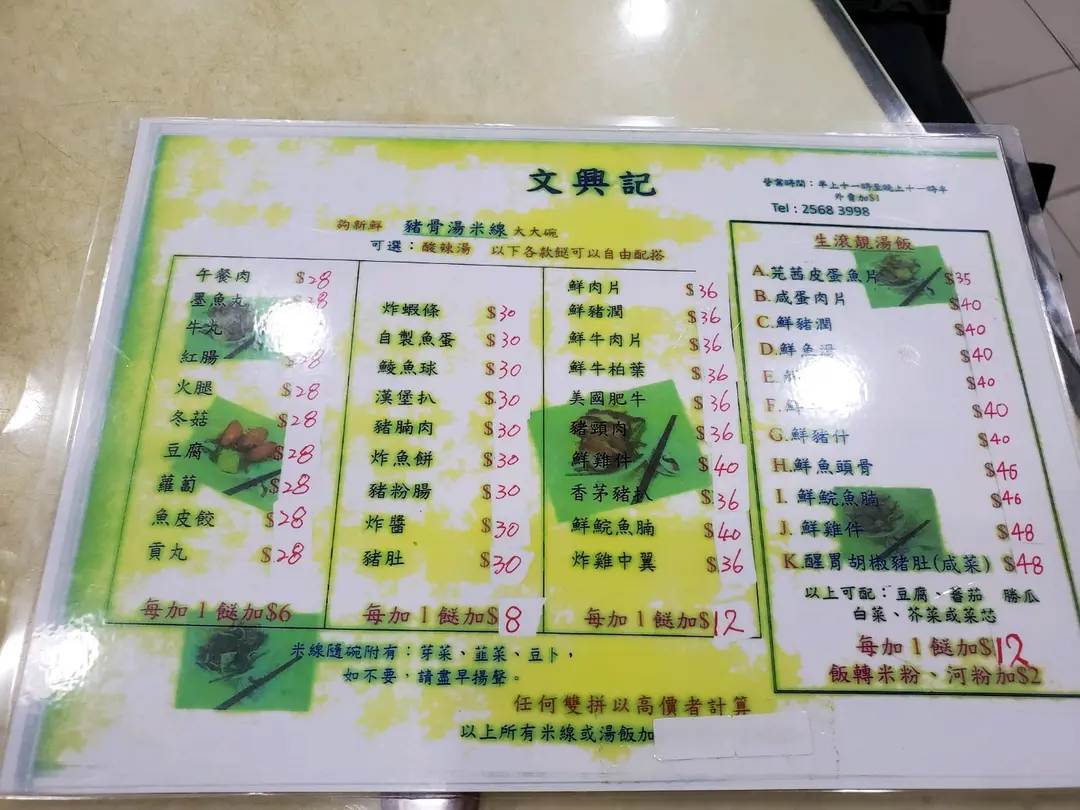 文興記
營業時間：早上十一時至晚上十一時半
外賣加$1
Tel : 2568 3998
夠新鮮 豬骨湯米線 大大碗
可選：酸辣湯 以下各款餸可以自由配搭
午餐肉 $28
墨魚丸 28
牛丸
紅腸 28
火腿 $28
冬菇 $28
豆腐 $28
蘿蔔 $28
魚皮餃 $28
貢丸 $28
每加1餸加$6
炸蝦條 $30
自製魚蛋 $30
鯪魚球 $30
漢堡扒 $30
豬腩肉 $30
炸魚餅 $30
豬粉腸 $30
炸醬 $30
豬肚 $30
每加1餸加$8
鮮肉片 $36
鮮豬潤 $36
鮮牛肉片 $36
鮮牛柏葉 $36
美國肥牛 $36
豬頸肉 $36
鮮雞件 $40
香茅豬扒 $36
鮮鯇魚腩 $40
炸雞中翼 $36
每加1餸加$12
生滾靚湯飯
A.芫茜皮蛋魚片 $35
B.咸蛋肉片 $40
C.鮮豬潤 $40
D.鮮魚滑 $40
E. $40
F.鮮 $40
G.鮮豬什 $40
H.鮮魚頭骨 $46
I. 鮮鯇魚腩 $46
J. 鮮雞件 $48
K.醒胃胡椒豬肚(咸菜) $48
以上可配：豆腐、番茄 勝瓜
白菜、芥菜或菜芯
每加1餸加$12
飯轉米粉、河粉加$2
米線隨碗附有：芽菜、韮菜、豆卜，
如不要，請盡早揚聲。
任何雙拼以高價者計算
以上所有米線或湯飯加